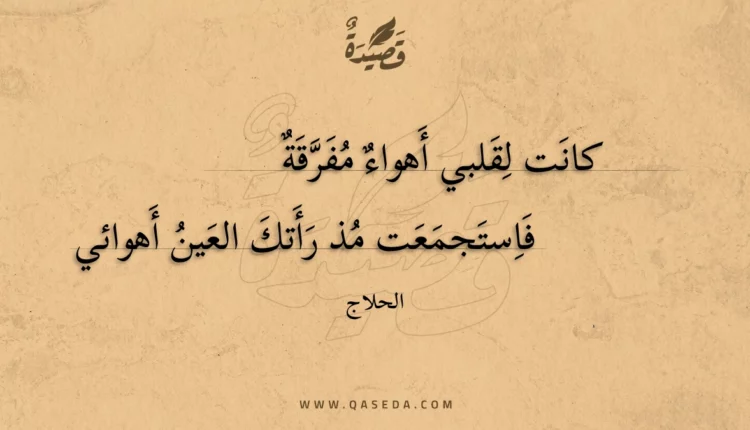 قَصِيدَةٌ
كانَت لِقَلبي أَهواءٌ مُفَرَّقَةٌ
فَاِستَجمَعَت مُذ رَأَتكَ العَينُ أَهوائي
الحلاج
WWW.QASEDA.COM